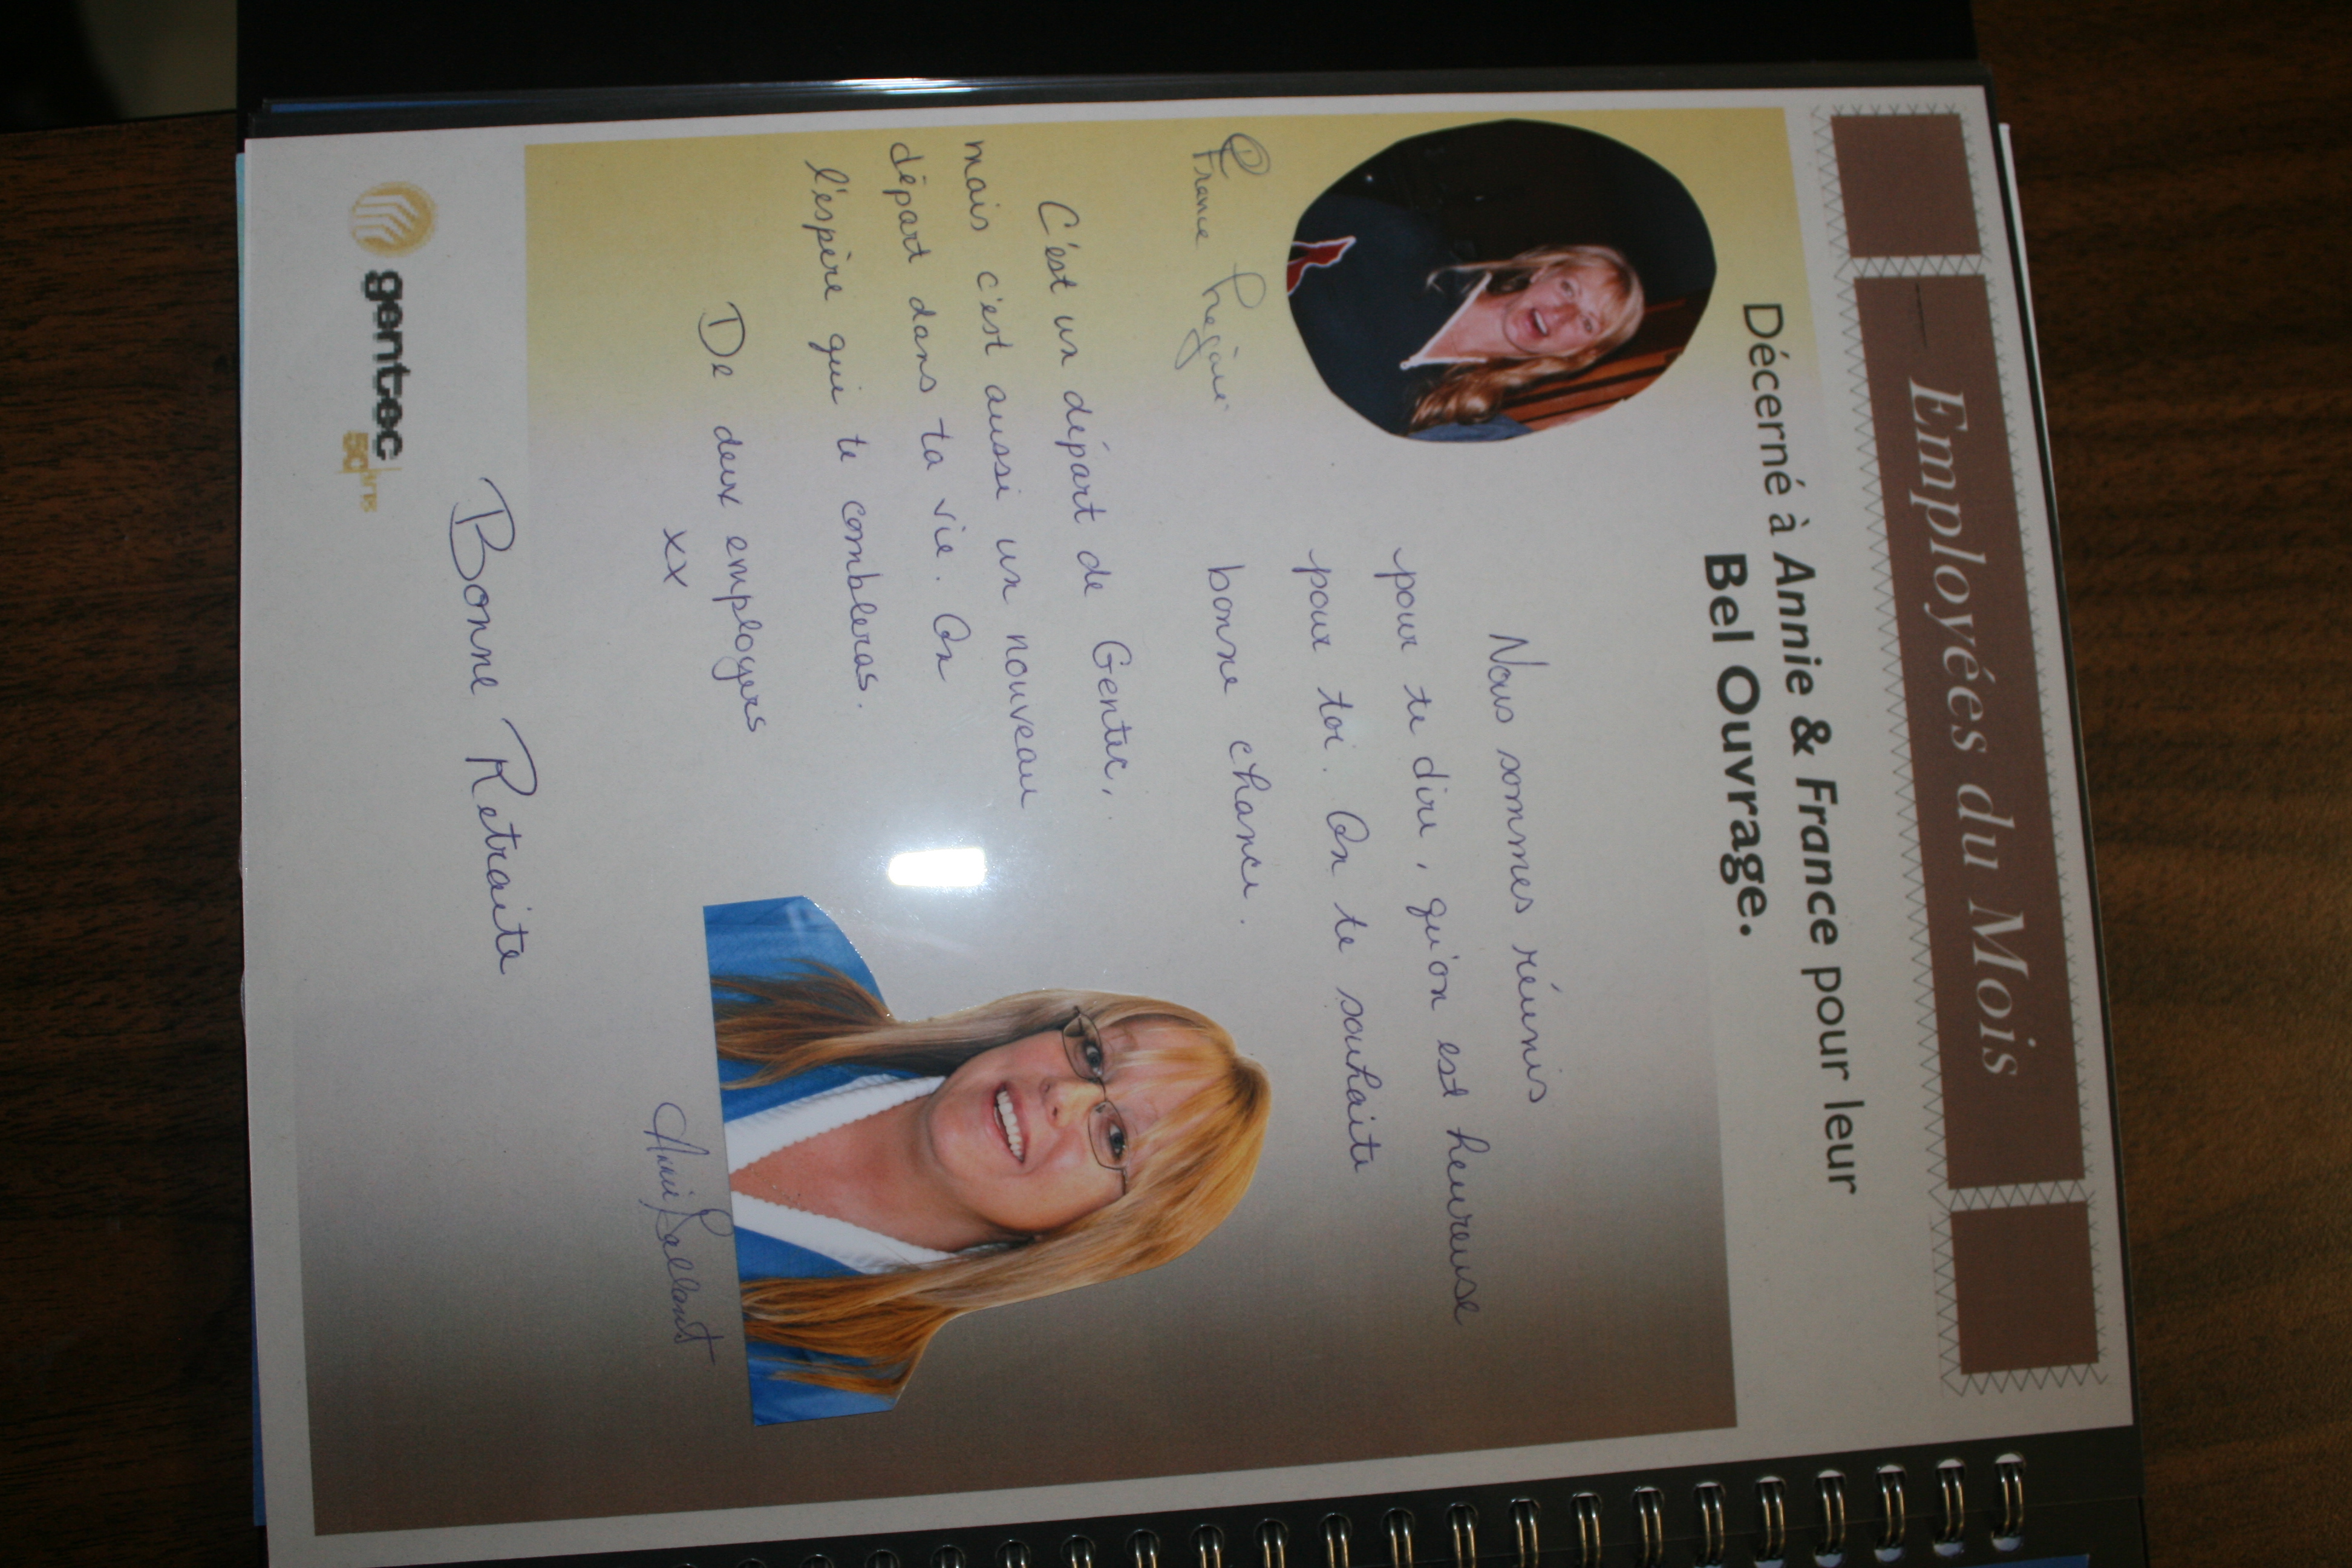 Employées du Mois
Décerné à Annie & France pour leur
Bel Ouvrage.
Nous sommes réunis
pour te dire, qu'on est heureuse
pour toi. On te souhaite
bonne chance.
France
C'est un départ de Gentec,
mais c'est aussi un nouveau
départ dans ta vie. On
l'espère qui te combleras.
De deux employers
xx
Annie Gallant
Bonne Retraite
gentec
50 ans